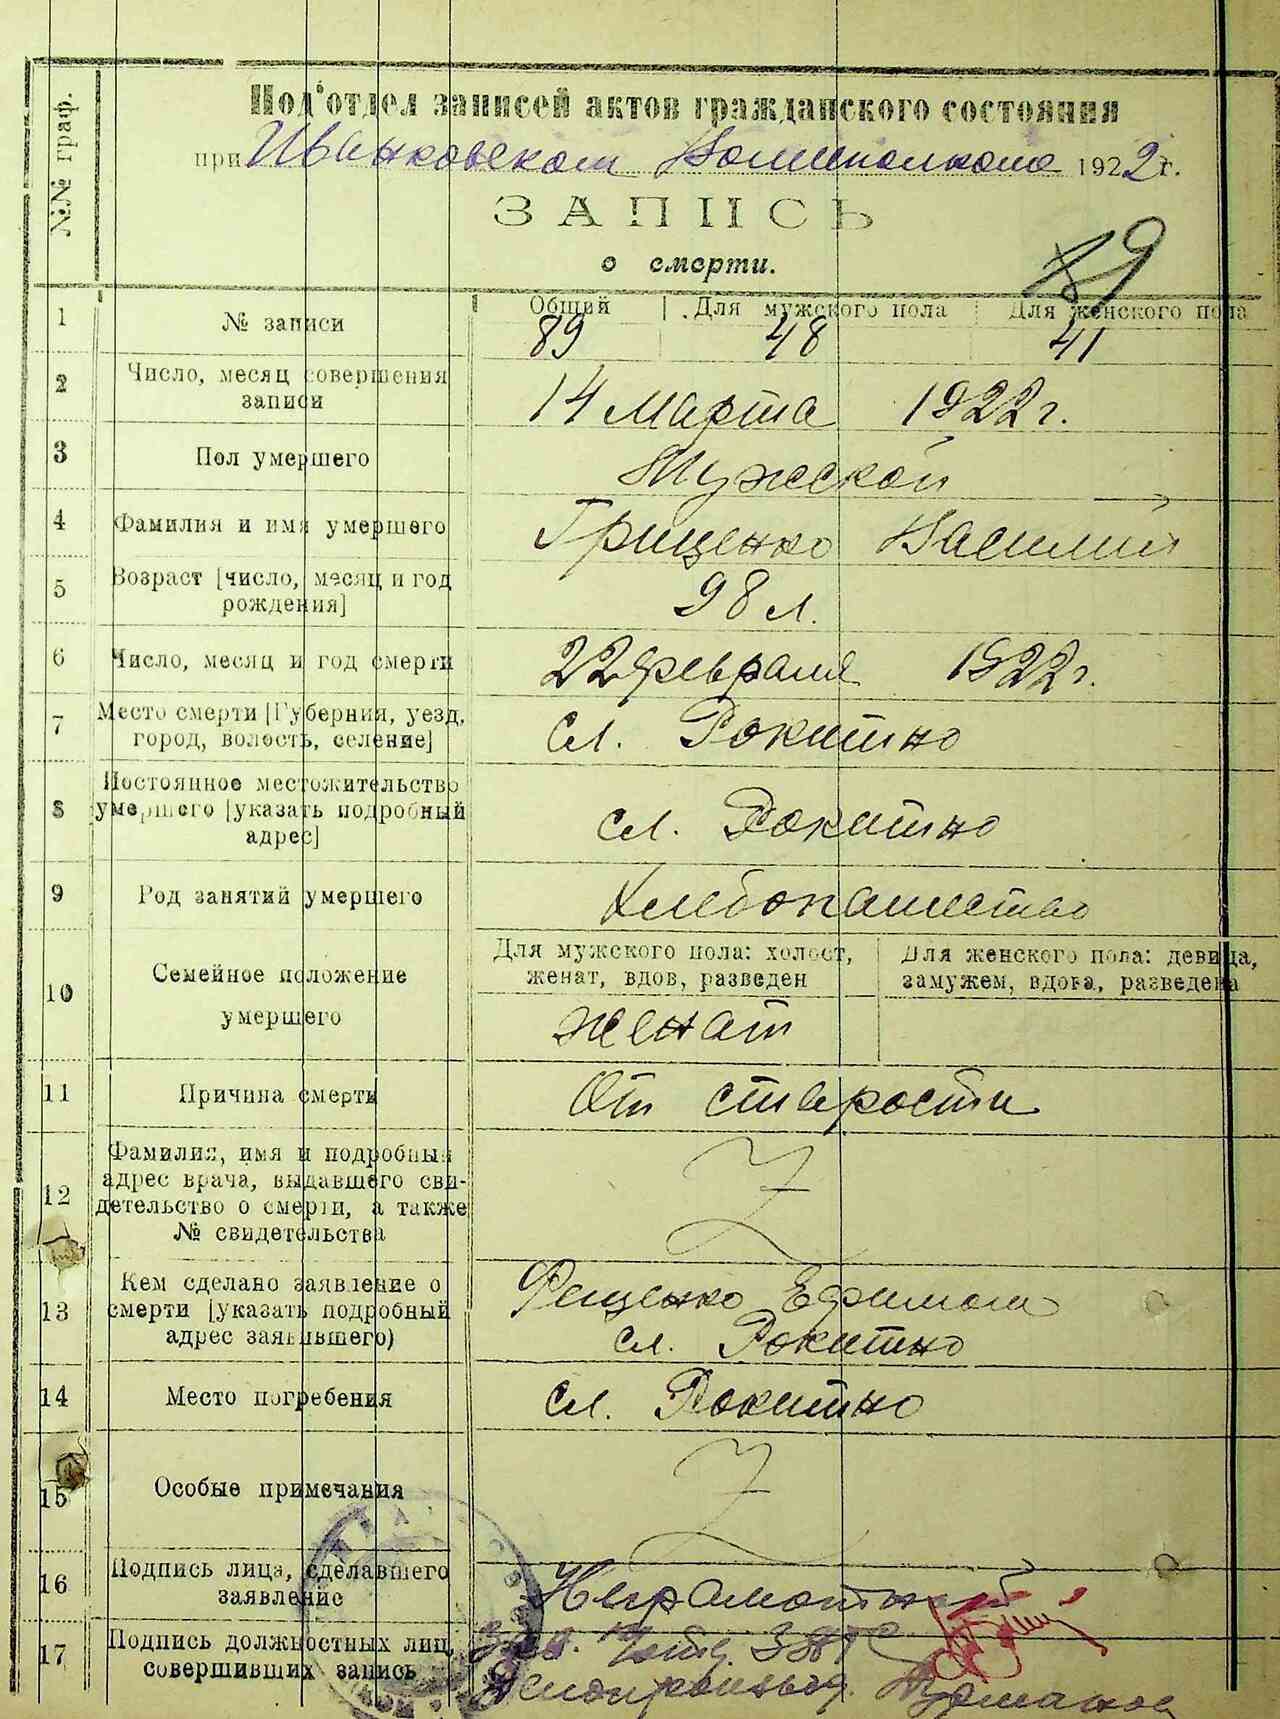 №№ граф.
Под'отдел записей актов гражданского состояния
при Иванковском Волисполкоме 1922 г.
ЗАПИСЬ
о смерти.
89
1 № записи Общий Для мужского пола Для женского пола
89 48 41
2 Число, месяц совершения
записи
14 Марта 1922 г.
3 Пол умершего Мужской
4 Фамилия и имя умершего Грищенко Василий
5 Возраст [число, месяц и год
рождения]
98 л.
6 Число, месяц и год смерти 22 февраля 1922 г.
7 Место смерти [Губерния, уезд,
город, волость, селение]
сл. Рокитно
8 Постоянное местожительство
умершего [указать подробный
адрес]
сл. Рокитно
9 Род занятий умершего Хлебопашество
10 Семейное положение
умершего
Для мужского пола: холост,
женат, вдов, разведен
Для женского пола: девица,
замужем, вдова, разведена
женат
11 Причина смерти От старости
12 Фамилия, имя и подробный
адрес врача, выдавшего сви-
детельство о смерти, а также
№ свидетельства
13 Кем сделано заявление о
смерти [указать подробный
адрес заявившего)
Ефимом
сл. Рокитно
14 Место погребения сл. Рокитно
15 Особые примечания
16 Подпись лица, сделавшего
заявление
Неграмотный
17 Подпись должностных лиц,
совершивших запись
Зав.